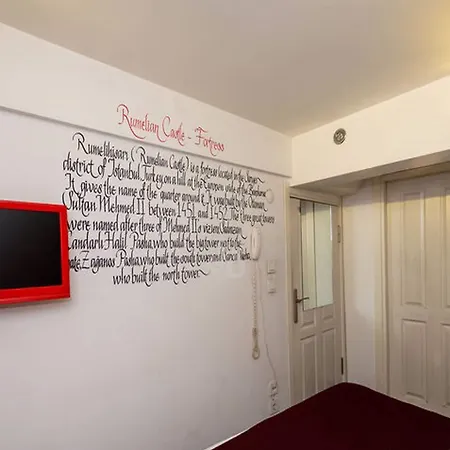 Rumelian Castle - Fortress
Rumelihisarı (Rumelian Castle) is a fortress located in the Sarıyer
district of Istanbul, Turkey, on a hill at the European side of the Bosphorus
It gives the name of the quarter around it. It was built by the Ottoman
Sultan Mehmed II between 1451 and 1452. The three great towers
were named after three of Mehmed II.s viziers, Sadrazam
Çandarlı Halil Pasha, who build the big tower next to the
gate, Zağanos Pasha, who built the south tower and Sarıca Pasha
who built the north tower.